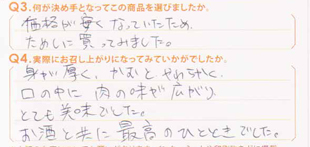 Q3.何が決め手となってこの商品を選びましたか。
価格が安くなっていたため、
ためしに買ってみました。
Q4.実際にお召し上がりになってみていかがでしたか。
身が厚く、かむとやわらかく、
口の中に肉の味が広がり、
とても美味でした。
お酒と共に最高のひとときでした。